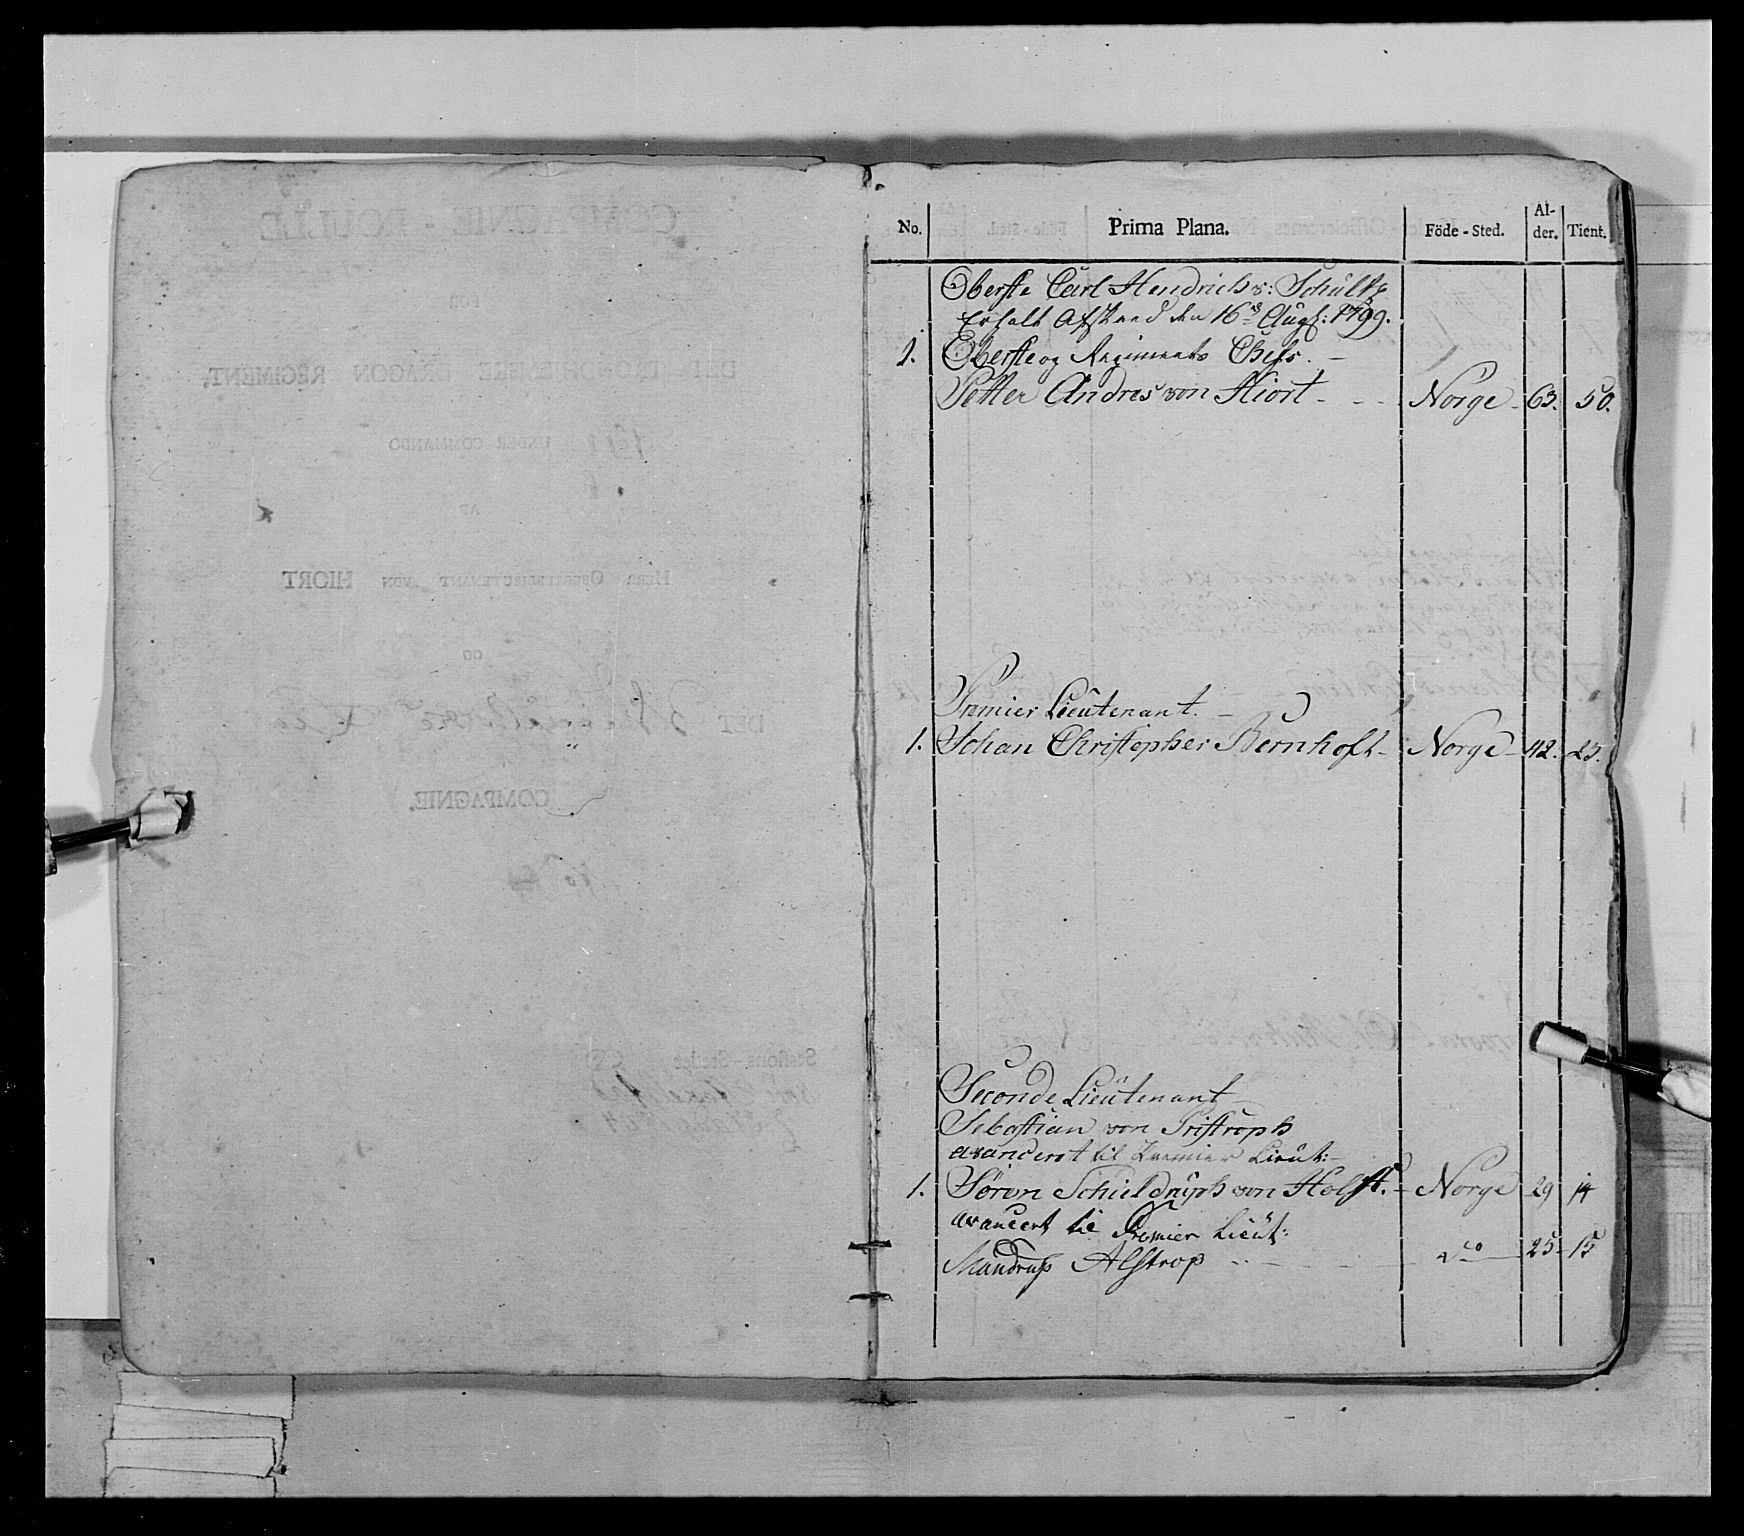 No. Prima Plana. Föde - Sted. Al-der. Tient.
Oberste Carl Hendrich v: Schultz
Erholt Afskeed den 16de Aug: 1799.
1. Oberste og Regiments Chefs. -
Petter Andres von Hiort - - - Norge 63. 50.
Premier Lieutenant. -
1. Johan Christopher Bernhoft - Norge 42. 23.
Seconde Lieutenant
Sebastian von Tristroph
avancerot til Premier Lieut:
1. Søren Schieldruph von Holst. - Norge 29 14
avancert til Premier Lieut:
Mandrup Alstrop do 25 15
COMPAGNIE - ROULLE
FOR
DET TRONDHIEMSKE DRAGON REGIMENT,
UNDER COMMANDO
AF
HERR OBERSTELIEUTENANT VON HIORT
OG
DET
COMPAGNIE,
Sessions - Stedge